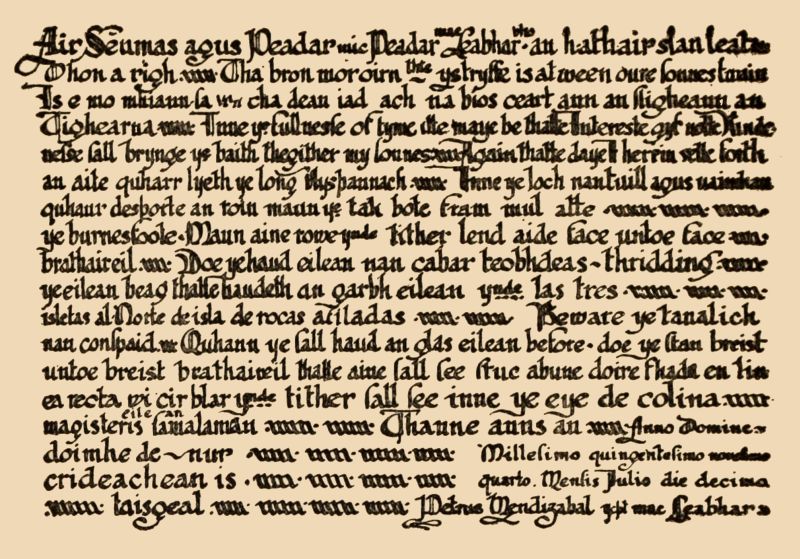 Air Seumas agus Peadar mic Peadar mac Leabhar an hathair slan leat
Thon a righ Tha bron mor oirn thte ystryffe is atween oure sonnes twain
Is e mo mhiann-sa cha dean iad ach na bios ceart ann an slighean an
Tighearna Inne ye fullnesse of tyme itte maye be thatte Intereste gyf notte Kinde
nesse sall brynge ye baith thegither my sonnes Again thatte daye I herein sette forth
an aite quharr lyeth ye long Hyspannach Inne ye loch nantuill agus uaimhan
quhaur desporte an roin maun ye tak bote fram mul atte
ye burnesfoote Maun aine rowe ynde tither lend aide face untoe face
brathaireil Doe ye haud eilean nan cabar teobhdeas thridding
ye eilean beag thatte haudeth an garbh eilean ynde las tres
isletas al Norte de isla de rocas afiladas Beware ye tanalich
nan conspaid Quhann ye sall haud an glas eilean before doe ye stan breist
untoe breist brathaireil thatte aine sall see stuc abune doire fhada en lin
ea recta wi cir blar ynde tither sall see inne ye eye de colina
magisteris eile an samalaman Thanne anns an Anno Domine
doimhe de nur Millesimo quingentesimo nonohno
crideachean is quarto. Mensis Julio die decima
taisgeal Petrus Mendizabal mac Leabhar